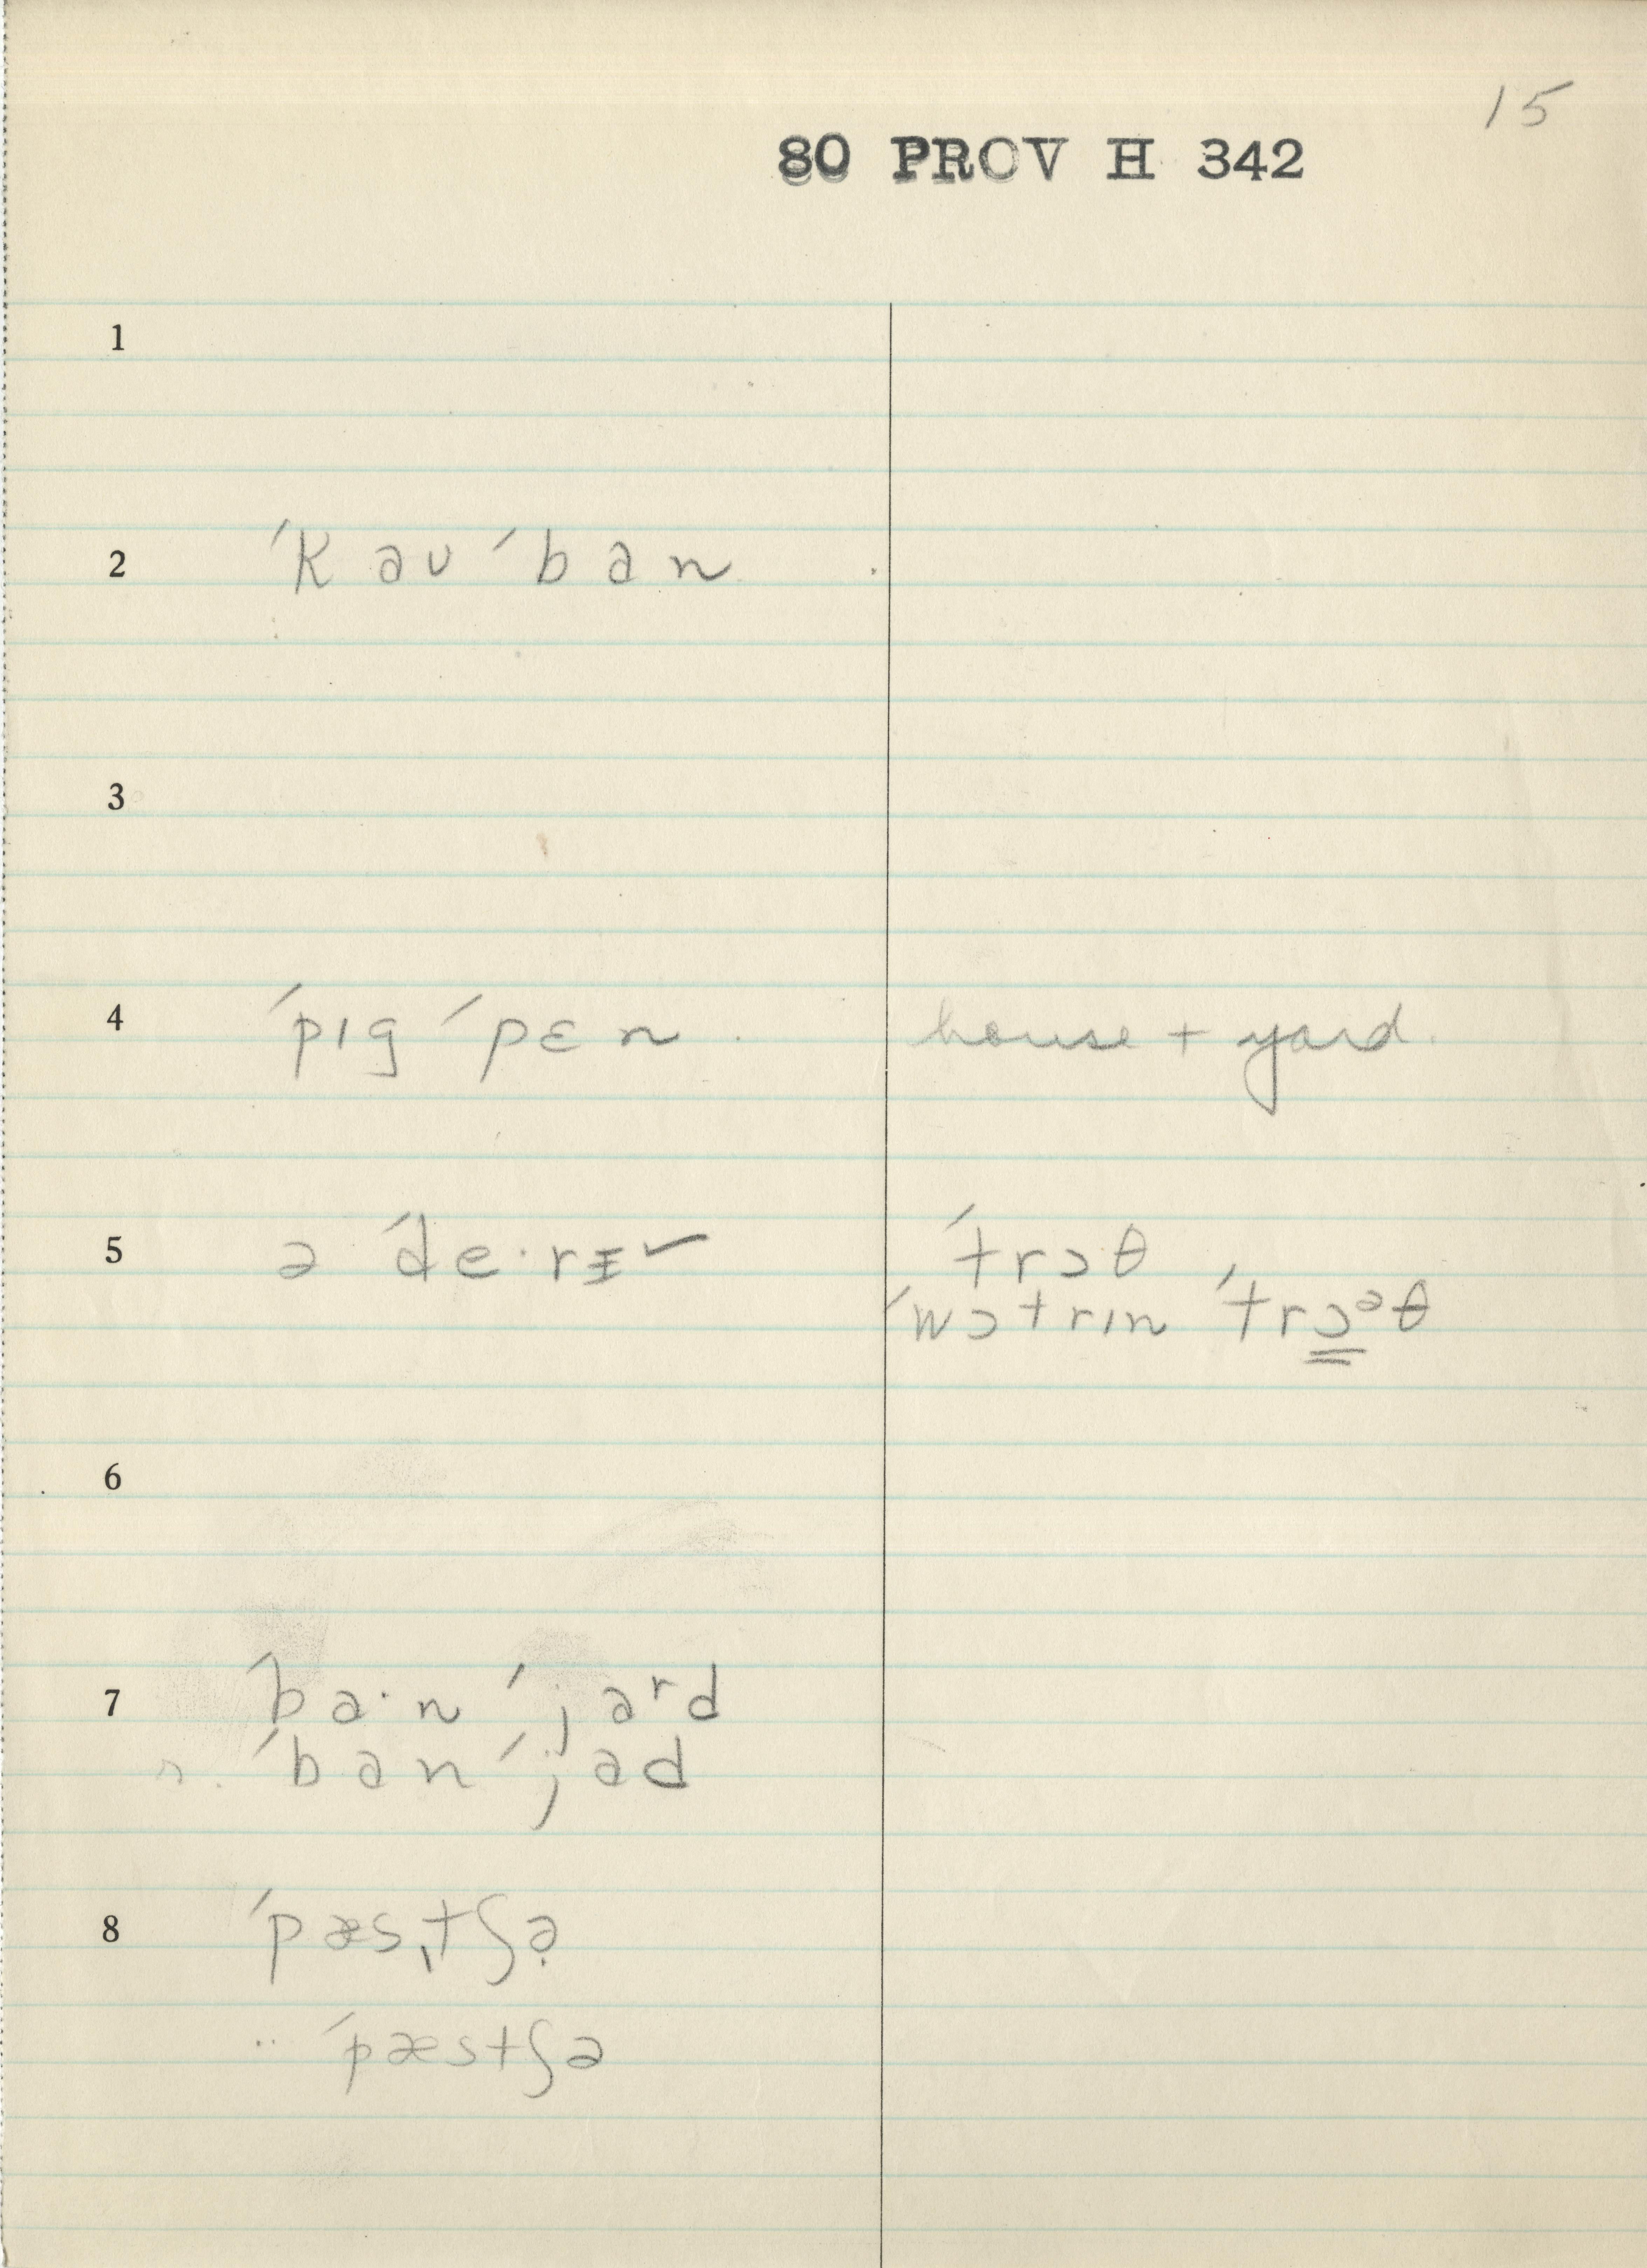 15
80 PROV H 342
1
2 ´kaʊ´ban
3
4 ´pɪg´pɛn. house + yard.
5 ə ´de·rɪ̵ˇ ´trɔθ
´wɔtrɪn ´trɔ̳ᵊθ
6
7 ´ba·n´jaʳd
´ban´jad
8 ´pæsˌtʃə̣
·· ´pæstʃə